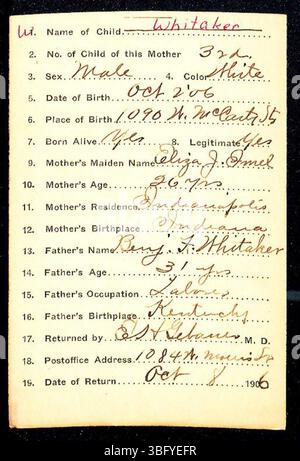 W 1. Name of Child Whitaker
2. No. of Child of this Mother 3rd
3. Sex Male 4. Color White
5. Date of Birth Oct 2 '06
6. Place of Birth 1090 W. McCarty St
7. Born Alive Yes 8. Legitimate Yes
9. Mother's Maiden Name Eliza J.
10. Mother's Age 26 yrs
11. Mother's Residence Indianapolis
12. Mother's Birthplace Indiana
13. Father's Name Benj. F. Whitaker
14. Father's Age 31 yrs
15. Father's Occupation Labor
16. Father's Birthplace Kentucky
17. Returned by M. D.
18. Postoffice Address 1084 W. Morris St
19. Date of Return Oct 8 1906
alamy
Image ID: 3BFYEFR
www.alamy.com